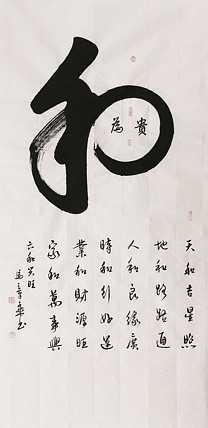 和
為貴
天和吉星照
地和路路通
人和良緣廣
時和好運
業和財源旺
家和萬事興
六和兴旺